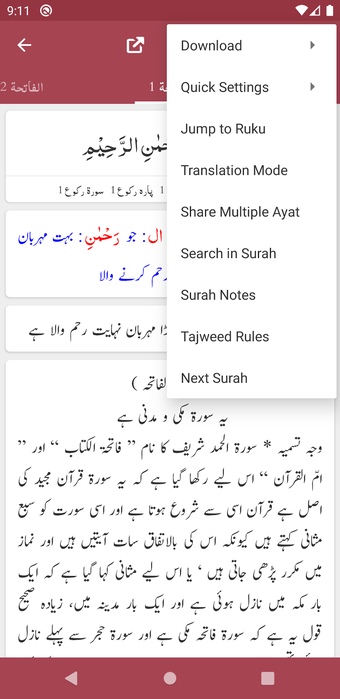 9:11
الفاتحة 2
1
Download
Quick Settings
Jump to Ruku
Translation Mode
Share Multiple Ayat
Search in Surah
Surah Notes
Tajweed Rules
Next Surah
الرَّحِيْمِ
1 پارہ رکوع 1 سورۃ رکوع 1
ال: جو رَحْمٰنِ: بہت مہربان
رحم کرنے والا
مہربان نہایت رحم والا ہے
( الفاتحہ
یہ سورۃ مکی و مدنی ہے
وجہ تسمیہ * سورۃ الحمد شریف کا نام ” فاتحۃ الکتاب “ اور ”
امّ القرآن “ اس لیے رکھا گیا ہے کہ یہ سورۃ قرآن مجید کی
اصل ہے قرآن اسی سے شروع ہوتا ہے اور اسی سورت کو سبع
مثانی کہتے ہیں کیونکہ اس کی بالاتفاق سات آیتیں ہیں اور نماز
میں مکرر پڑھی جاتی ہیں ‘ یا اس لیے مثانی کہا گیا ہے کہ ایک
بار مکہ میں نازل ہوئی ہے اور ایک بار مدینہ میں، زیادہ صحیح
قول یہ ہے کہ سورۃ فاتحہ مکی ہے اور سورۃ حجر سے پہلے نازل